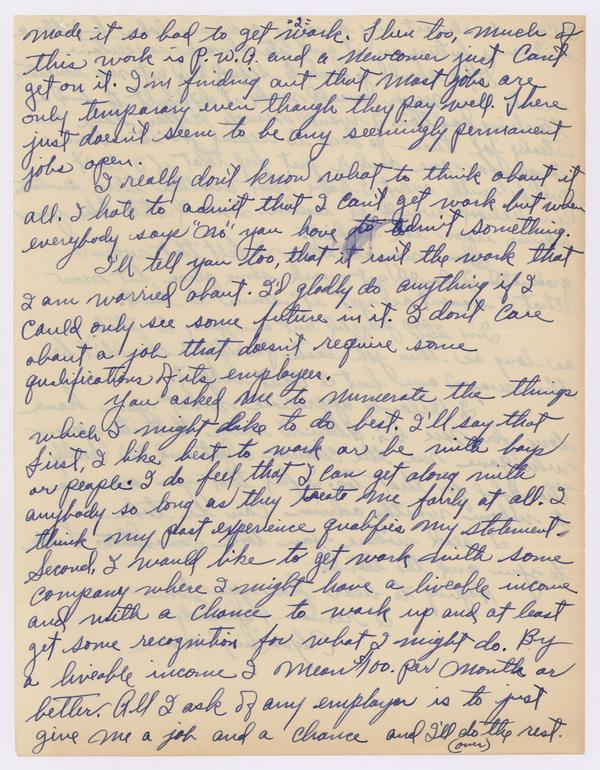 "2"
made it so bad to get work. Then too, much of
this work is P.W.A. and a newcomer just can't
get on it. I'm finding out that most jobs are
only temporary even though they pay well. There
just doesn't seem to be any seemingly permanent
jobs open.
I really don't know what to think about it
all. I hate to admit that I can't get work but when
everybody says "No" you have to admit something.
I'll tell you too, that it isn't the work that
I am worried about. I'd gladly do anything if I
could only see some future in it. I don't care
about a job that doesn't require some
qualifications of its employees.
You asked me to numerate the things
which I might like to do best. I'll say that
first, I like best to work or be with boys
or people. I do feel that I can get along with
anybody so long as they treate me fairly at all. I
think my past experience qualifies my statement.
Second, I would like to get work with some
company where I might have a liveable income
and with a chance to work up and at least
get some recognition for what I might do. By
a liveable income I mean $100. per month or
better. All I ask of any employer is to just
give me a job and a chance and I'll do the rest.
(over)